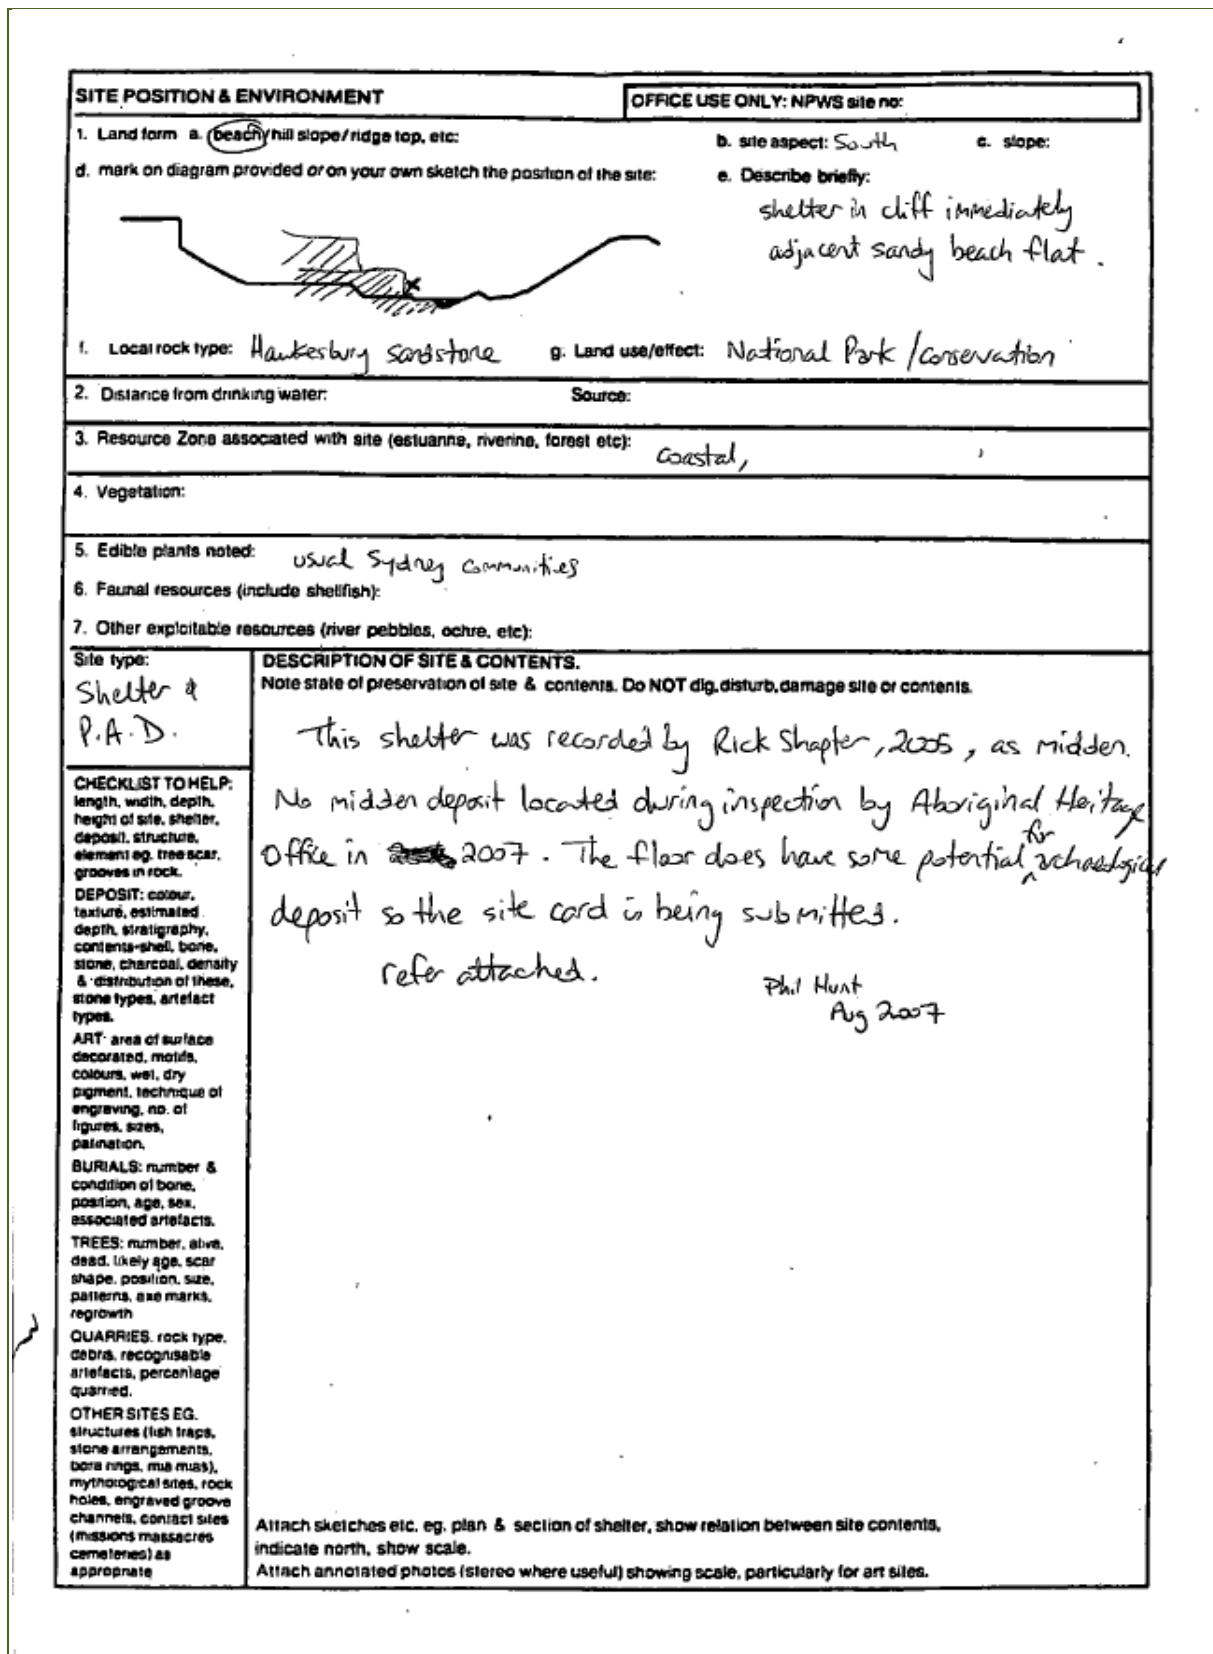 SITE POSITION & ENVIRONMENT
OFFICE USE ONLY: NPWS site no:
1. Land form a. beach/hill slope/ridge top, etc: b. site aspect: South c. slope:
d. mark on diagram provided or on your own sketch the position of the site: e. Describe briefly:
shelter in cliff immediately
adjacent sandy beach flat.
x
f. Local rock type: Hawkesbury sandstone g. Land use/effect: National Park / conservation
2. Distance from drinking water: Source:
3. Resource Zone associated with site (estuarine, riverine, forest etc): Coastal,
4. Vegetation:
5. Edible plants noted: usual Sydney communities
6. Faunal resources (include shellfish):
7. Other exploitable resources (river pebbles, ochre, etc):
Site type:
Shelter &
P.A.D.
CHECKLIST TO HELP:
length, width, depth,
height of site, shelter,
deposit, structure,
element eg. tree scar,
grooves in rock.
DEPOSIT: colour,
texture, estimated
depth, stratigraphy,
contents-shell, bone,
stone, charcoal, density
& distribution of these,
stone types, artefact
types.
ART: area of surface
decorated, motifs,
colours, wet, dry
pigment, technique of
engraving, no. of
figures, sizes,
patination.
BURIALS: number &
condition of bone,
position, age, sex,
associated artefacts.
TREES: number, alive,
dead, likely age, scar
shape, position, size,
patterns, axe marks,
regrowth
QUARRIES. rock type,
debris, recognisable
artefacts, percentage
quarried.
OTHER SITES EG.
structures (fish traps,
stone arrangements,
bora rings, mia mias),
mythological sites, rock
holes, engraved groove
channels, contact sites
(missions massacres
cemeteries) as
appropriate
DESCRIPTION OF SITE & CONTENTS.
Note state of preservation of site & contents. Do NOT dig, disturb, damage site or contents.
This shelter was recorded by Rick Shapter, 2005, as midden.
No midden deposit located during inspection by Aboriginal Heritage
Office in 2007. The floor does have some potential for archaeological
deposit so the site card is being submitted.
refer attached.
Phil Hunt
Aug 2007
Attach sketches etc. eg. plan & section of shelter, show relation between site contents,
indicate north, show scale.
Attach annotated photos (stereo where useful) showing scale, particularly for art sites.